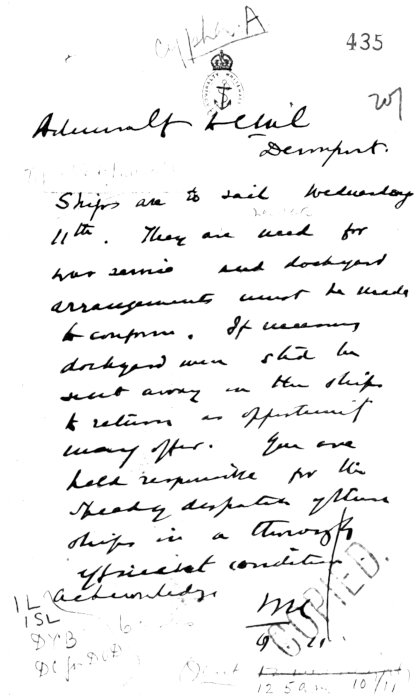 Cypher A
435
201
Admiralty to C in C
Devonport.
Ships are to sail Wednesday
11th. They are need for
war service and dockyard
arrangements must be made
to conform. If necessary
dockyard men shd be
sent away in the ships
to return as opportunity
may offer. You are
held responsible for the
speedy despatch of these
ships in a thoroughly
efficient condition
acknowledge
9 11
COPIED.
1 L
1 SL
12 5 a.m. 10/11